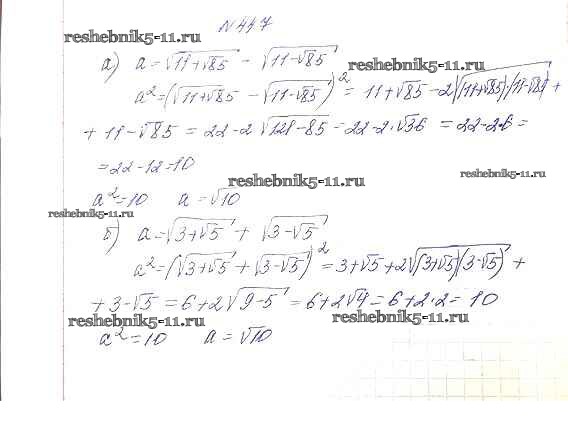 №447
reshebnik5-11.ru
а) a = √(11+√85) - √(11-√85)
a² = (√(11+√85) - √(11-√85))² = 11+√85 - 2√((11+√85)(11-√85)) +
+ 11-√85 = 22-2√(121-85) = 22-2·√36 = 22-2·6 =
= 22-12=10
reshebnik5-11.ru
reshebnik5-11.ru
a²=10 a = √10
reshebnik5-11.ru
б) a = √(3+√5) + √(3-√5)
a² = (√(3+√5) + √(3-√5))² = 3+√5+2√((3+√5)(3-√5)) +
+ 3-√5 = 6+2√(9-5) = 6+2√4 = 6+2·2 = 10
reshebnik5-11.ru
reshebnik5-11.ru
a²=10 a = √10